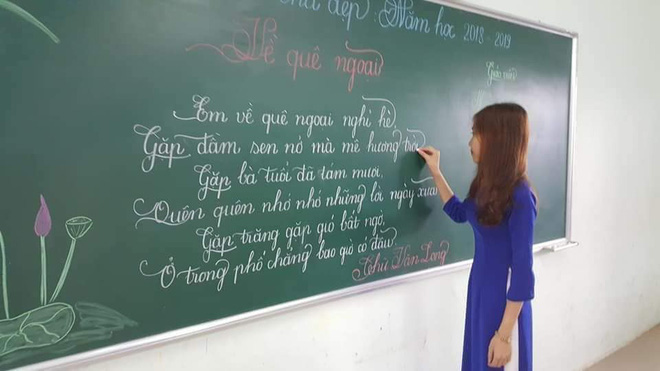 đẹp: Năm học 2018 - 2019
Giáo viên
Về quê ngoại
Em về quê ngoại nghỉ hè,
Gặp đầm sen nở mà mê hương trời
Gặp bà tuổi đã tám mươi,
Quên quên nhớ nhớ những lời ngày xưa
Gặp trăng gặp gió bất ngờ,
Ở trong phố chẳng bao giờ có đâu
Chử Văn Long